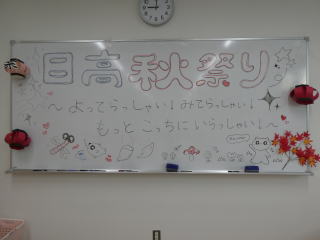 日高秋祭り
～よってらっしゃい！みてらっしゃい！
もっとこっちにいらっしゃい！～